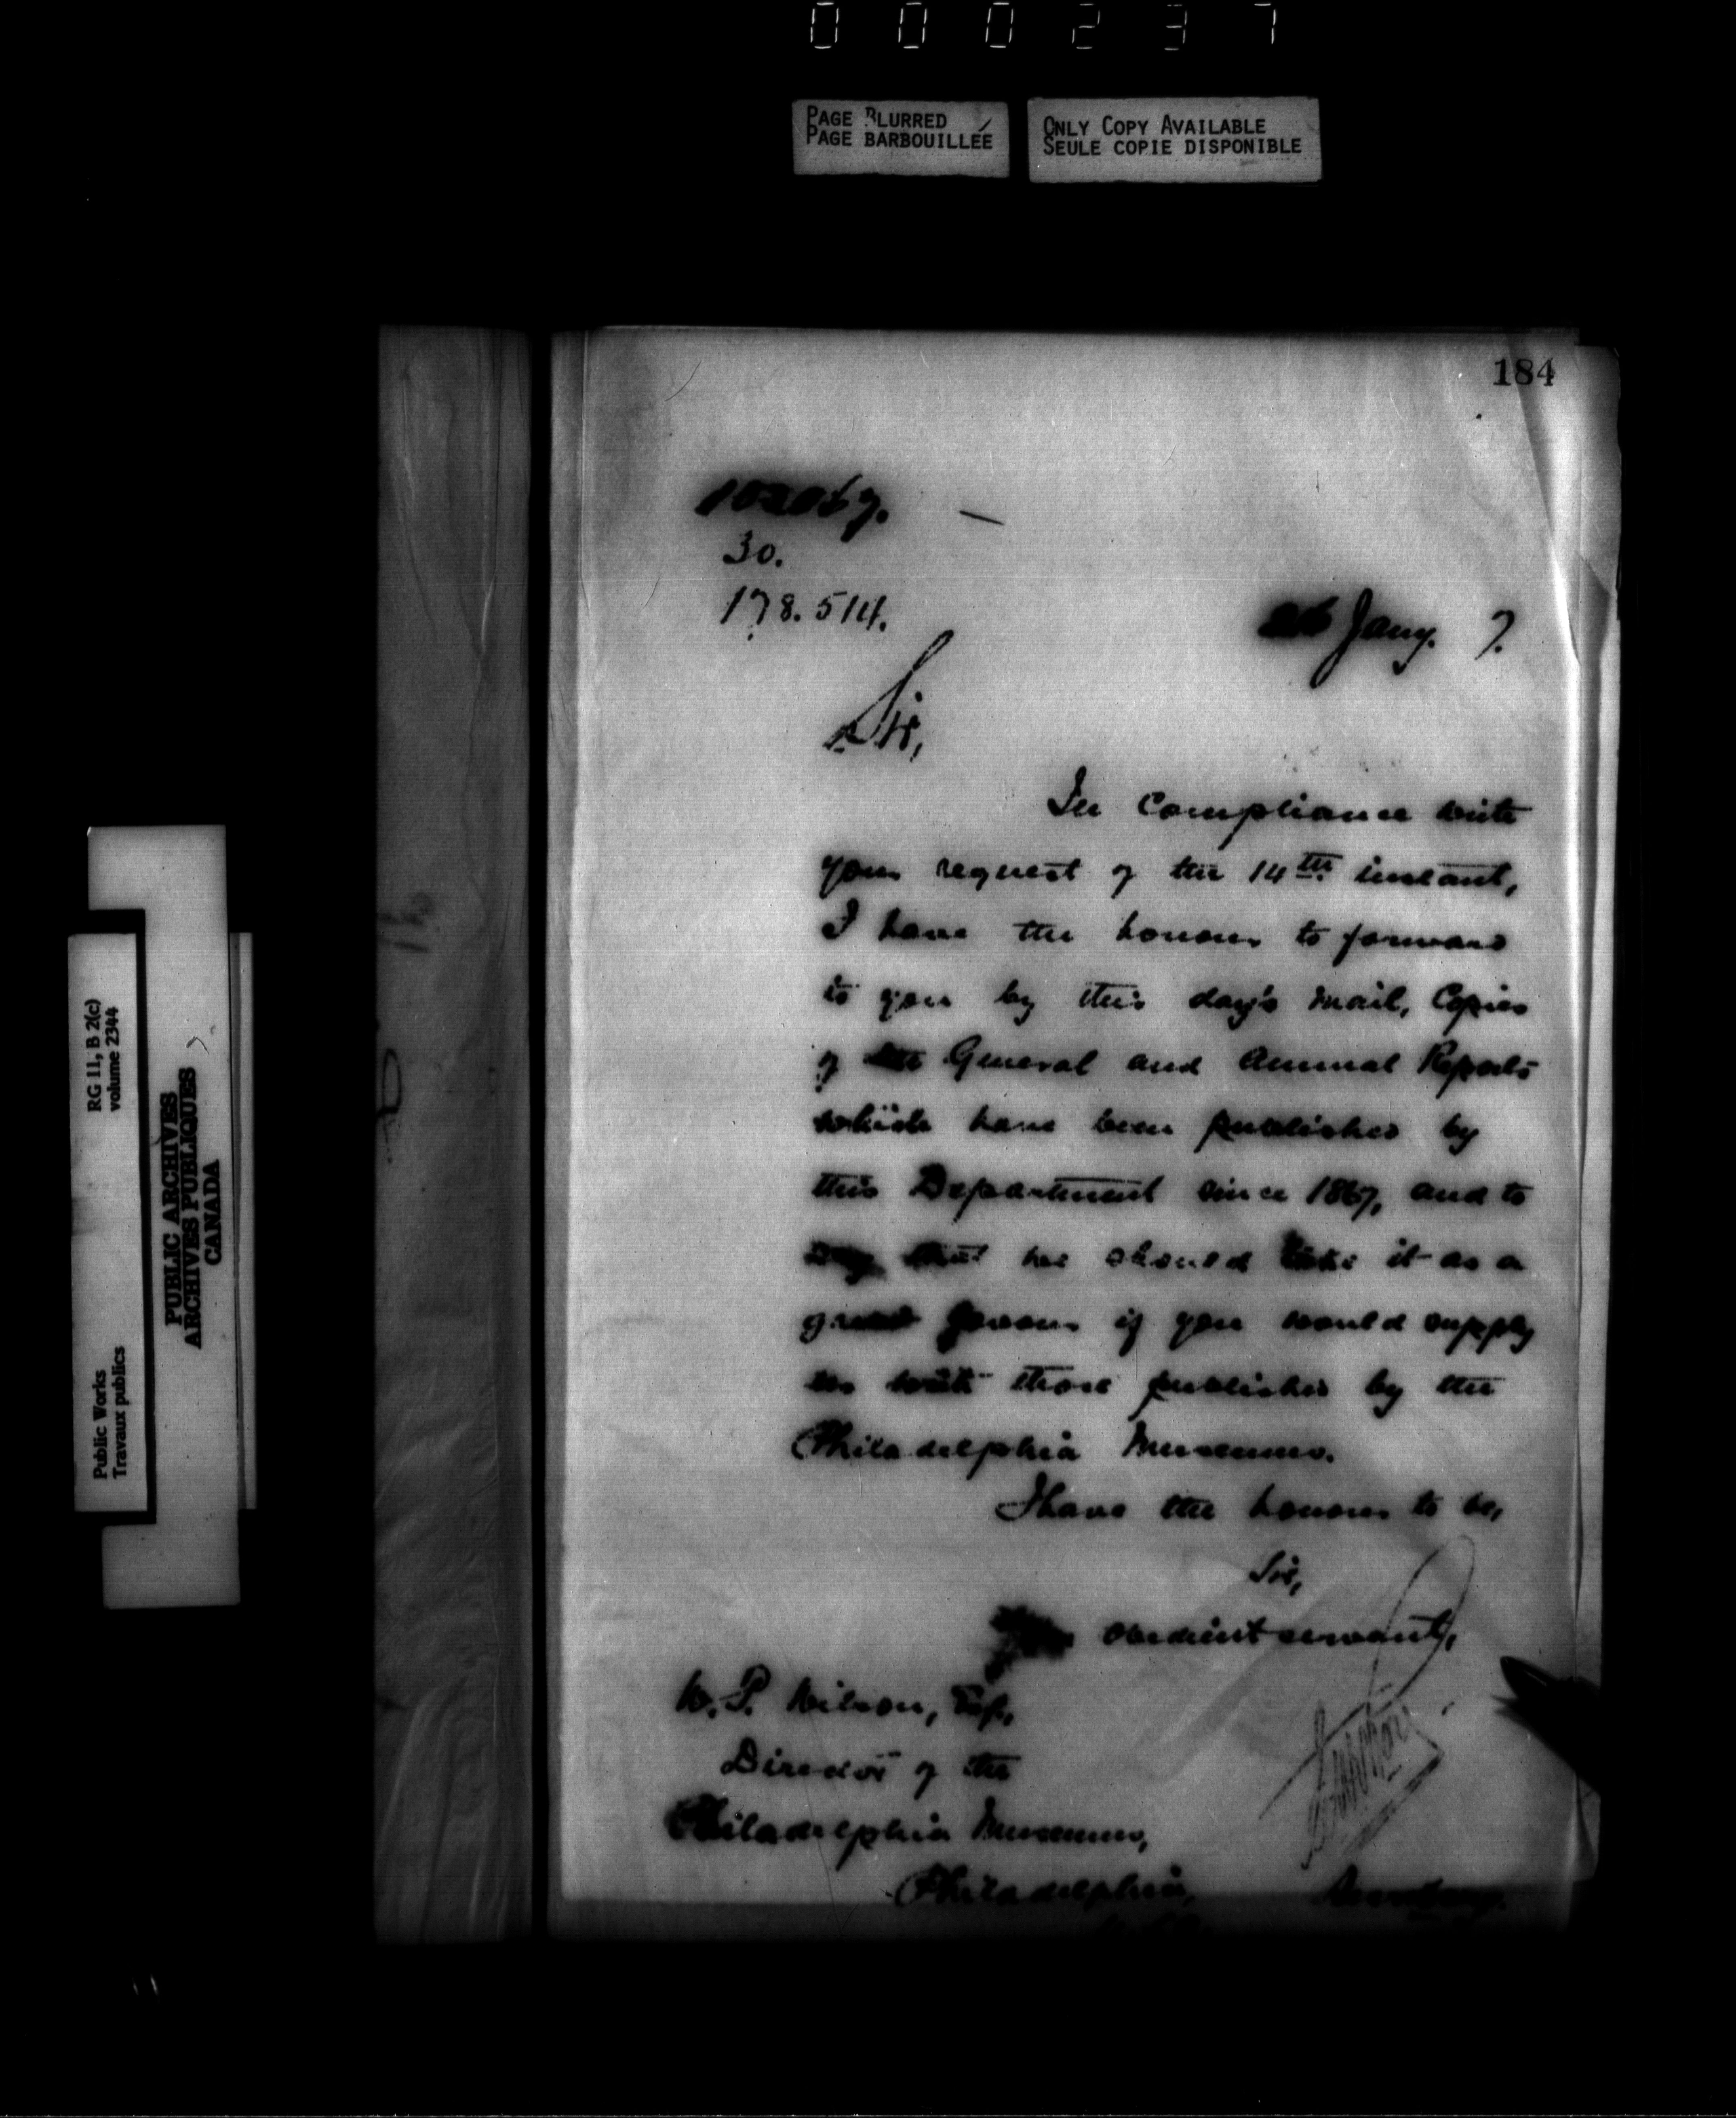 000237
PAGE BLURRED
PAGE BARBOUILLÉE
ONLY COPY AVAILABLE
SEULE COPIE DISPONIBLE
184
30.
178.514.
26 Jany. 7.
Sir,
In Compliance with
your request of the 14th instant,
I have the honour to forward
to you by this day's mail, Copies
of the General and Annual Reports
which have been published by
this Department since 1867, and to
say that we should take it as a
great favour if you would supply
us with those published by the
Philadelphia Museums.
I have the honour to be,
Sir,
Your obedient servant,
W. P. Wilson, Esq.,
Director of the
Philadelphia Museums,
Philadelphia,
Secretary.
RG 11, B 2(c)
volume 2344
Public Works
Travaux publics
PUBLIC ARCHIVES
ARCHIVES PUBLIQUES
CANADA